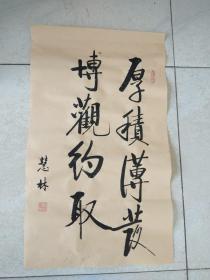 厚積薄發
博觀約取
慧林